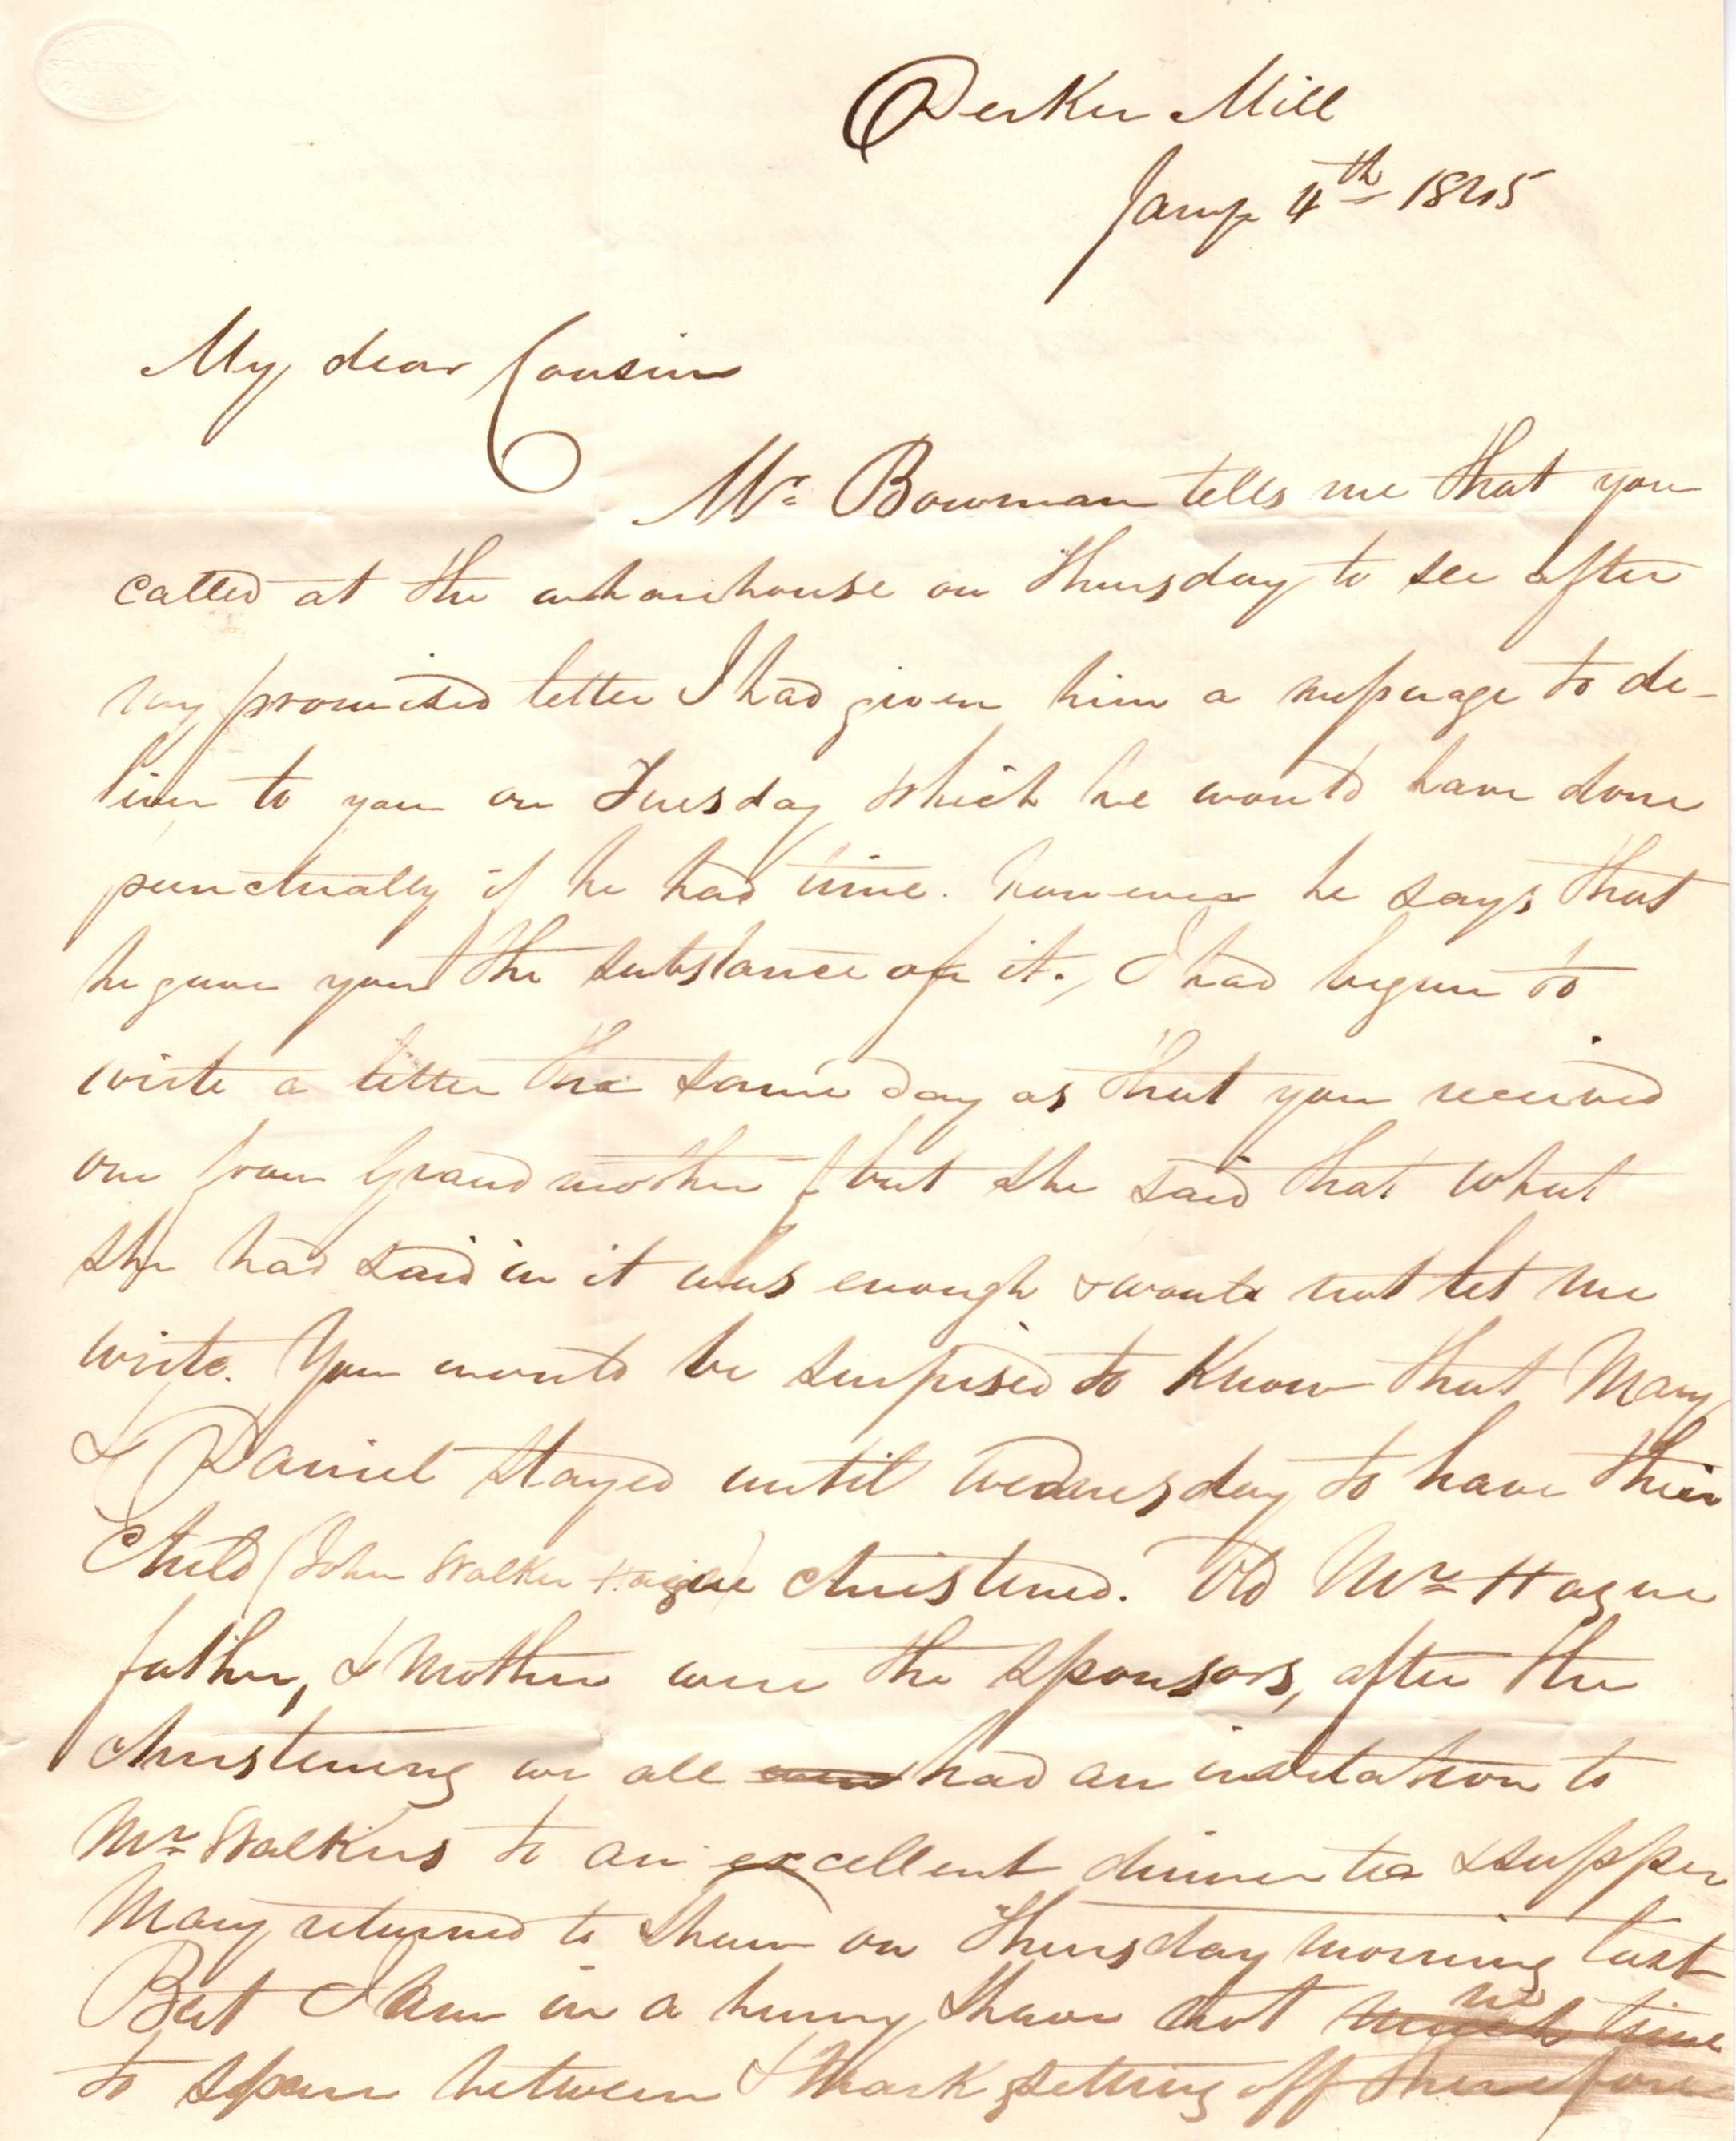 Derker Mill
Jany 4th 1845
My dear Cousin
Mr. Bowman tells me that you
called at the wharehouse on Thursday to see after
my promised letter I had given him a message to de-
liver to you on Tuesday which he would have done
punctually if he had time. however he says that
he gave you the substance of it., I had begun to
write a letter the same day as that you received
one from Grandmother but she said that what
she had said in it was enough & would not let me
write. You would be surprised to Know that Mary
& Daniel stayed until Wednesday to have their
Child (John Walker Hague) christened. Old Mr Hague
father, & Mother were the sponsors, after the
christening we all had an invitation to
Mr Walkers to an excellent dinner tea & supper
Mary returned to Shaw on Thursday morning last
But I am in a hurry, & have not much no time
to spare between & Mark setting off therefore
STATIONER